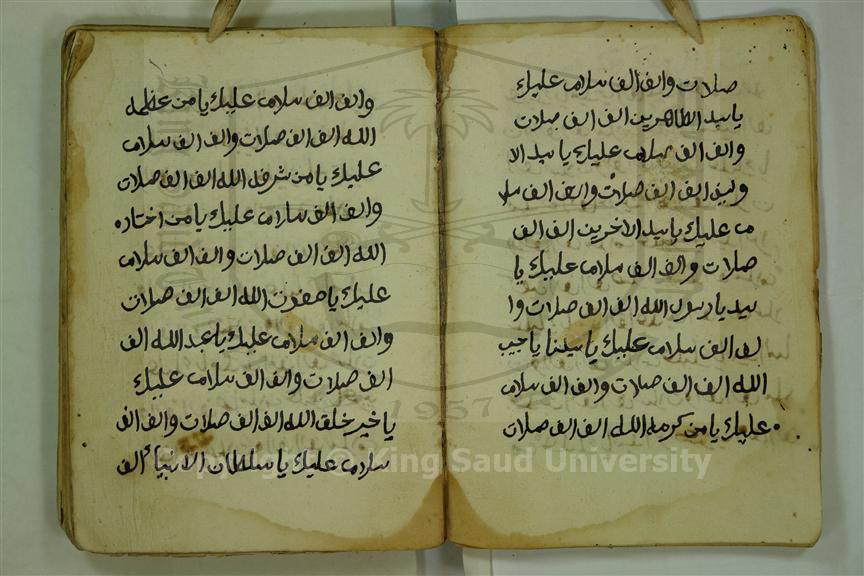 صلات والف الف سلام عليك
يا سيد الطاهرين الف الف صلات
والف الف سلام عليك يا سيد الا
ولين الف الف صلات والف الف سلا
م عليك يا سيد الاخرين الف الف
صلات والف الف سلام عليك يا
سيد يا رسول الله الف الف صلات وا
لف الف سلام عليك يا سيدنا يا حبيب
الله الف الف صلات والف الف سلام
عليك يا من كرمه الله الف الف صلات
والف الف سلام عليك يا من عظمه
الله الف الف صلات والف الف سلام
عليك يا من شرفه الله الف الف صلات
والف الف سلام عليك يا من اختاره
الله الف الف صلات والف الف سلام
عليك يا صفوت الله الف الف صلات
والف الف سلام عليك يا عبد الله الف
الف صلات والف الف سلام عليك
يا خير خلق الله الف الف صلات والف الف
سلام عليك يا سلطان الانبياء الف
1957
Copyright © King Saud University